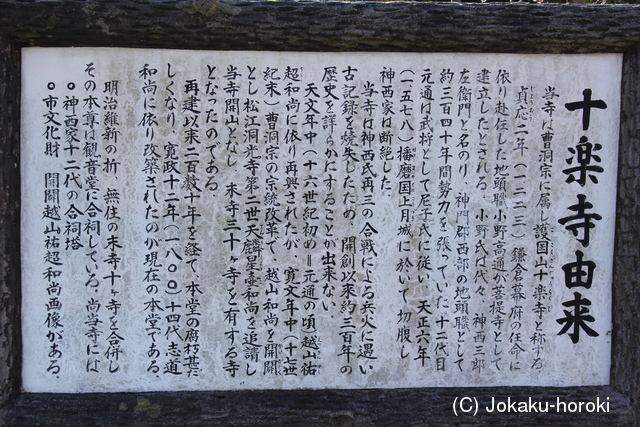 十楽寺由来
当寺は曹洞宗に属し護国山十楽寺と称する
貞応二年（一二二三）鎌倉幕府の任命に
依り赴任した地頭職小野高通が菩提寺として
建立したとされる。小野氏は代々、神西三郎
左衛門と名のり、神門郡西部の地頭職として
約三百四十年間勢力を張っていた。十二代目
元通は武将として尼子氏に従い、天正六年
（一五七八）播磨国上月城に於いて切腹し
神西家は断絶した。
当寺は神西氏再三の合戦による兵火に遇い
古記録を焼失したため、開創以来約三百年の
歴史を詳らかにすることが出来ない。
天文年中（十六世紀初め＝元通の頃）越山祐
超和尚に依り再興されたが、寛文年中（十七世
紀末）曹洞宗の宗統改革で、越山和尚を開闢
とし松江洞光寺第二世天麟星臺和尚を追請し
当寺開山となし、末寺三十ヶ寺を有する寺
となったのである。
再建以来二百数十年を経て、本堂の腐朽甚だ
しくなり、寛政十二年（一八〇〇）十四代志道
和尚に依り改築されたのが現在の本堂である。
明治維新の折、無住の末寺十ヶ寺を合併し
その本尊は観音堂に合祠している。尚当寺には
○神西家十二代の合祠塔
○市文化財　開闢越山祐超和尚画像がある。
(C) Jokaku-horoki